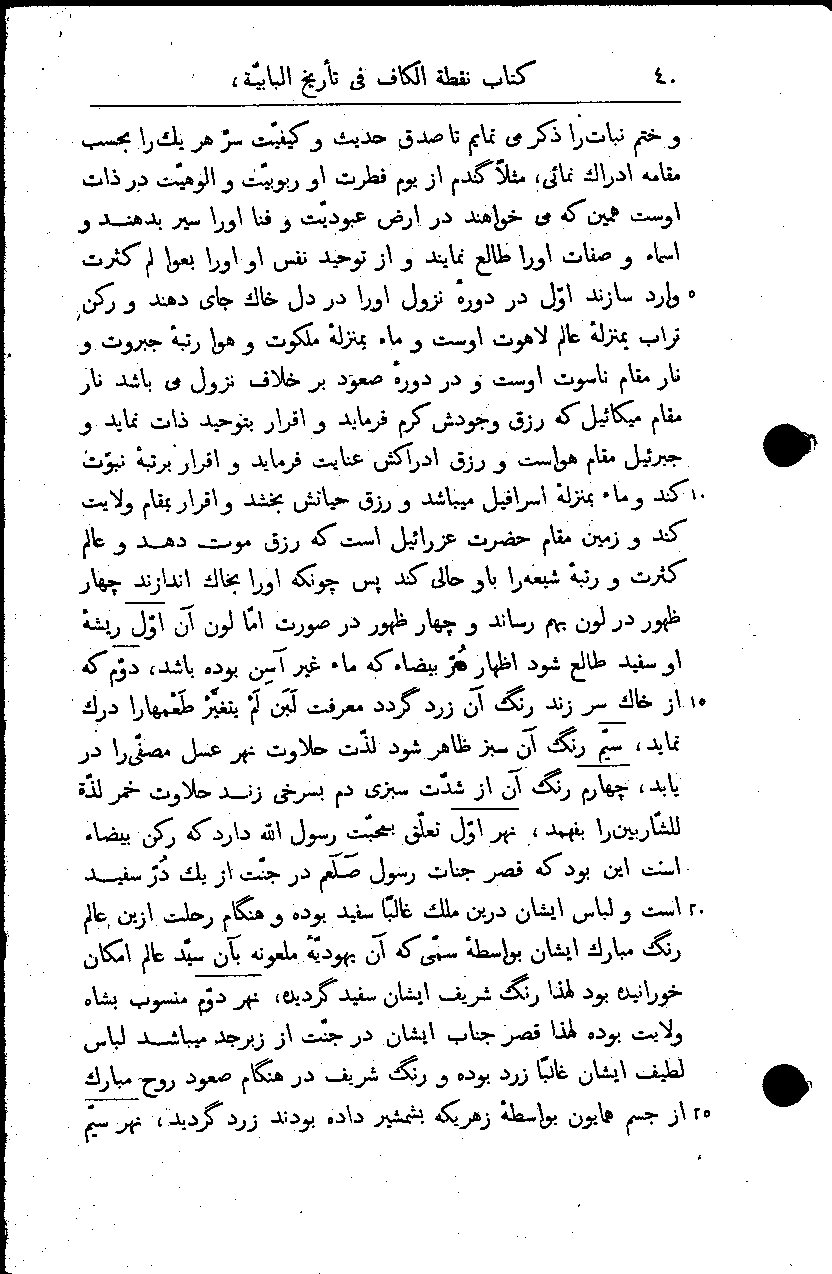 ٤٠ کتاب نقطة الکاف فی تأریخ البابیّة،
و ختم نبات‌را ذکر می نمایم تا صدق حدیث و کیفیّت سرّ هر یك‌را بحسب
مقامه ادراك نمائی، مثلاً گندم از یوم فطرت او ربوبیّت و الوهیّت در ذات
اوست همین که می خواهند در ارض عبودیّت و فنا اورا سیر بدهند و
اسماء و صفات اورا طالع نمایند و از توحید نفس او اورا بعوا لم کثرت
٥ وارد سازند اوّل در دورهٔ نزول اورا در دل خاك جای دهند و رکن
تراب بمنزلهٔ عالم لاهوت اوست و ماء بمنزلهٔ ملکوت و هوا رتبهٔ جبروت و
نار مقام ناسوت اوست و در دورهٔ صعود بر خلاف نزول می باشد نار
مقام میکائیل که رزق وجودش کرم فرماید و اقرار بتوحید ذات نماید و
جبرئیل مقام هواست و رزق ادراکش عنایت فرماید و اقرار برتبهٔ نبوّت
١٠ کند و ماء بمنزلهٔ اسرافیل میباشد و رزق حیاتش بخشد و اقرار بمقام ولایت
کند و زمین مقام حضرت عزرائیل است که رزق موت دهد و عالم
کثرت و رتبهٔ شیعه‌را باو حالی کند پس چونکه اورا بخاك اندازند چهار
ظهور در لون بهم رساند و چهار ظهور در صورت امّا لون آن اوّل ریشهٔ
او سفید طالع شود اظهار بیضاء که ماء غیر آسن بوده باشد، دوّم که
١٥ از خاك سر زند رنگ آن زرد گردد معرفت لَبَن لَمْ یتغیَّرْ طَعْمها‌را درك
نماید، سیّم رنگ آن سبز ظاهر شود لذّت حلاوت نهر عسل مصفّی‌را در
یابد، چهارم رنگ آن از شدّت سبزی دم بسرخی زند حلاوت خمر لذّة
للشّاربین‌را بفهمد، نهر اوّل تعلّق بمحبّت رسول الله دارد که رکن بیضاء
است این بود که قصر جنات رسول صَلَعم در جنّت از یك دُرّ سفید
٢٠ است و لباس ایشان درین ملك غالبًا سفید بوده و هنگام رحلت ازین عالم
رنگ مبارك ایشان بواسطهٔ سمّی که آن یهودیّهٔ ملعونه بآن سیّد عالم امکان
خورانیده بود لهذا رنگ شریف ایشان سفید گردیده، نهر دوّم منسوب بشاه
ولایت بوده لهذا قصر جناب ایشان در جنّت از زبرجد میباشد لباس
لطیف ایشان غالبًا زرد بوده و رنگ شریف در هنگام صعود روح مبارك
٢٥ از جسم همایون بواسطهٔ زهریکه بشمشیر داده بودند زرد گردید، نهر سیّم